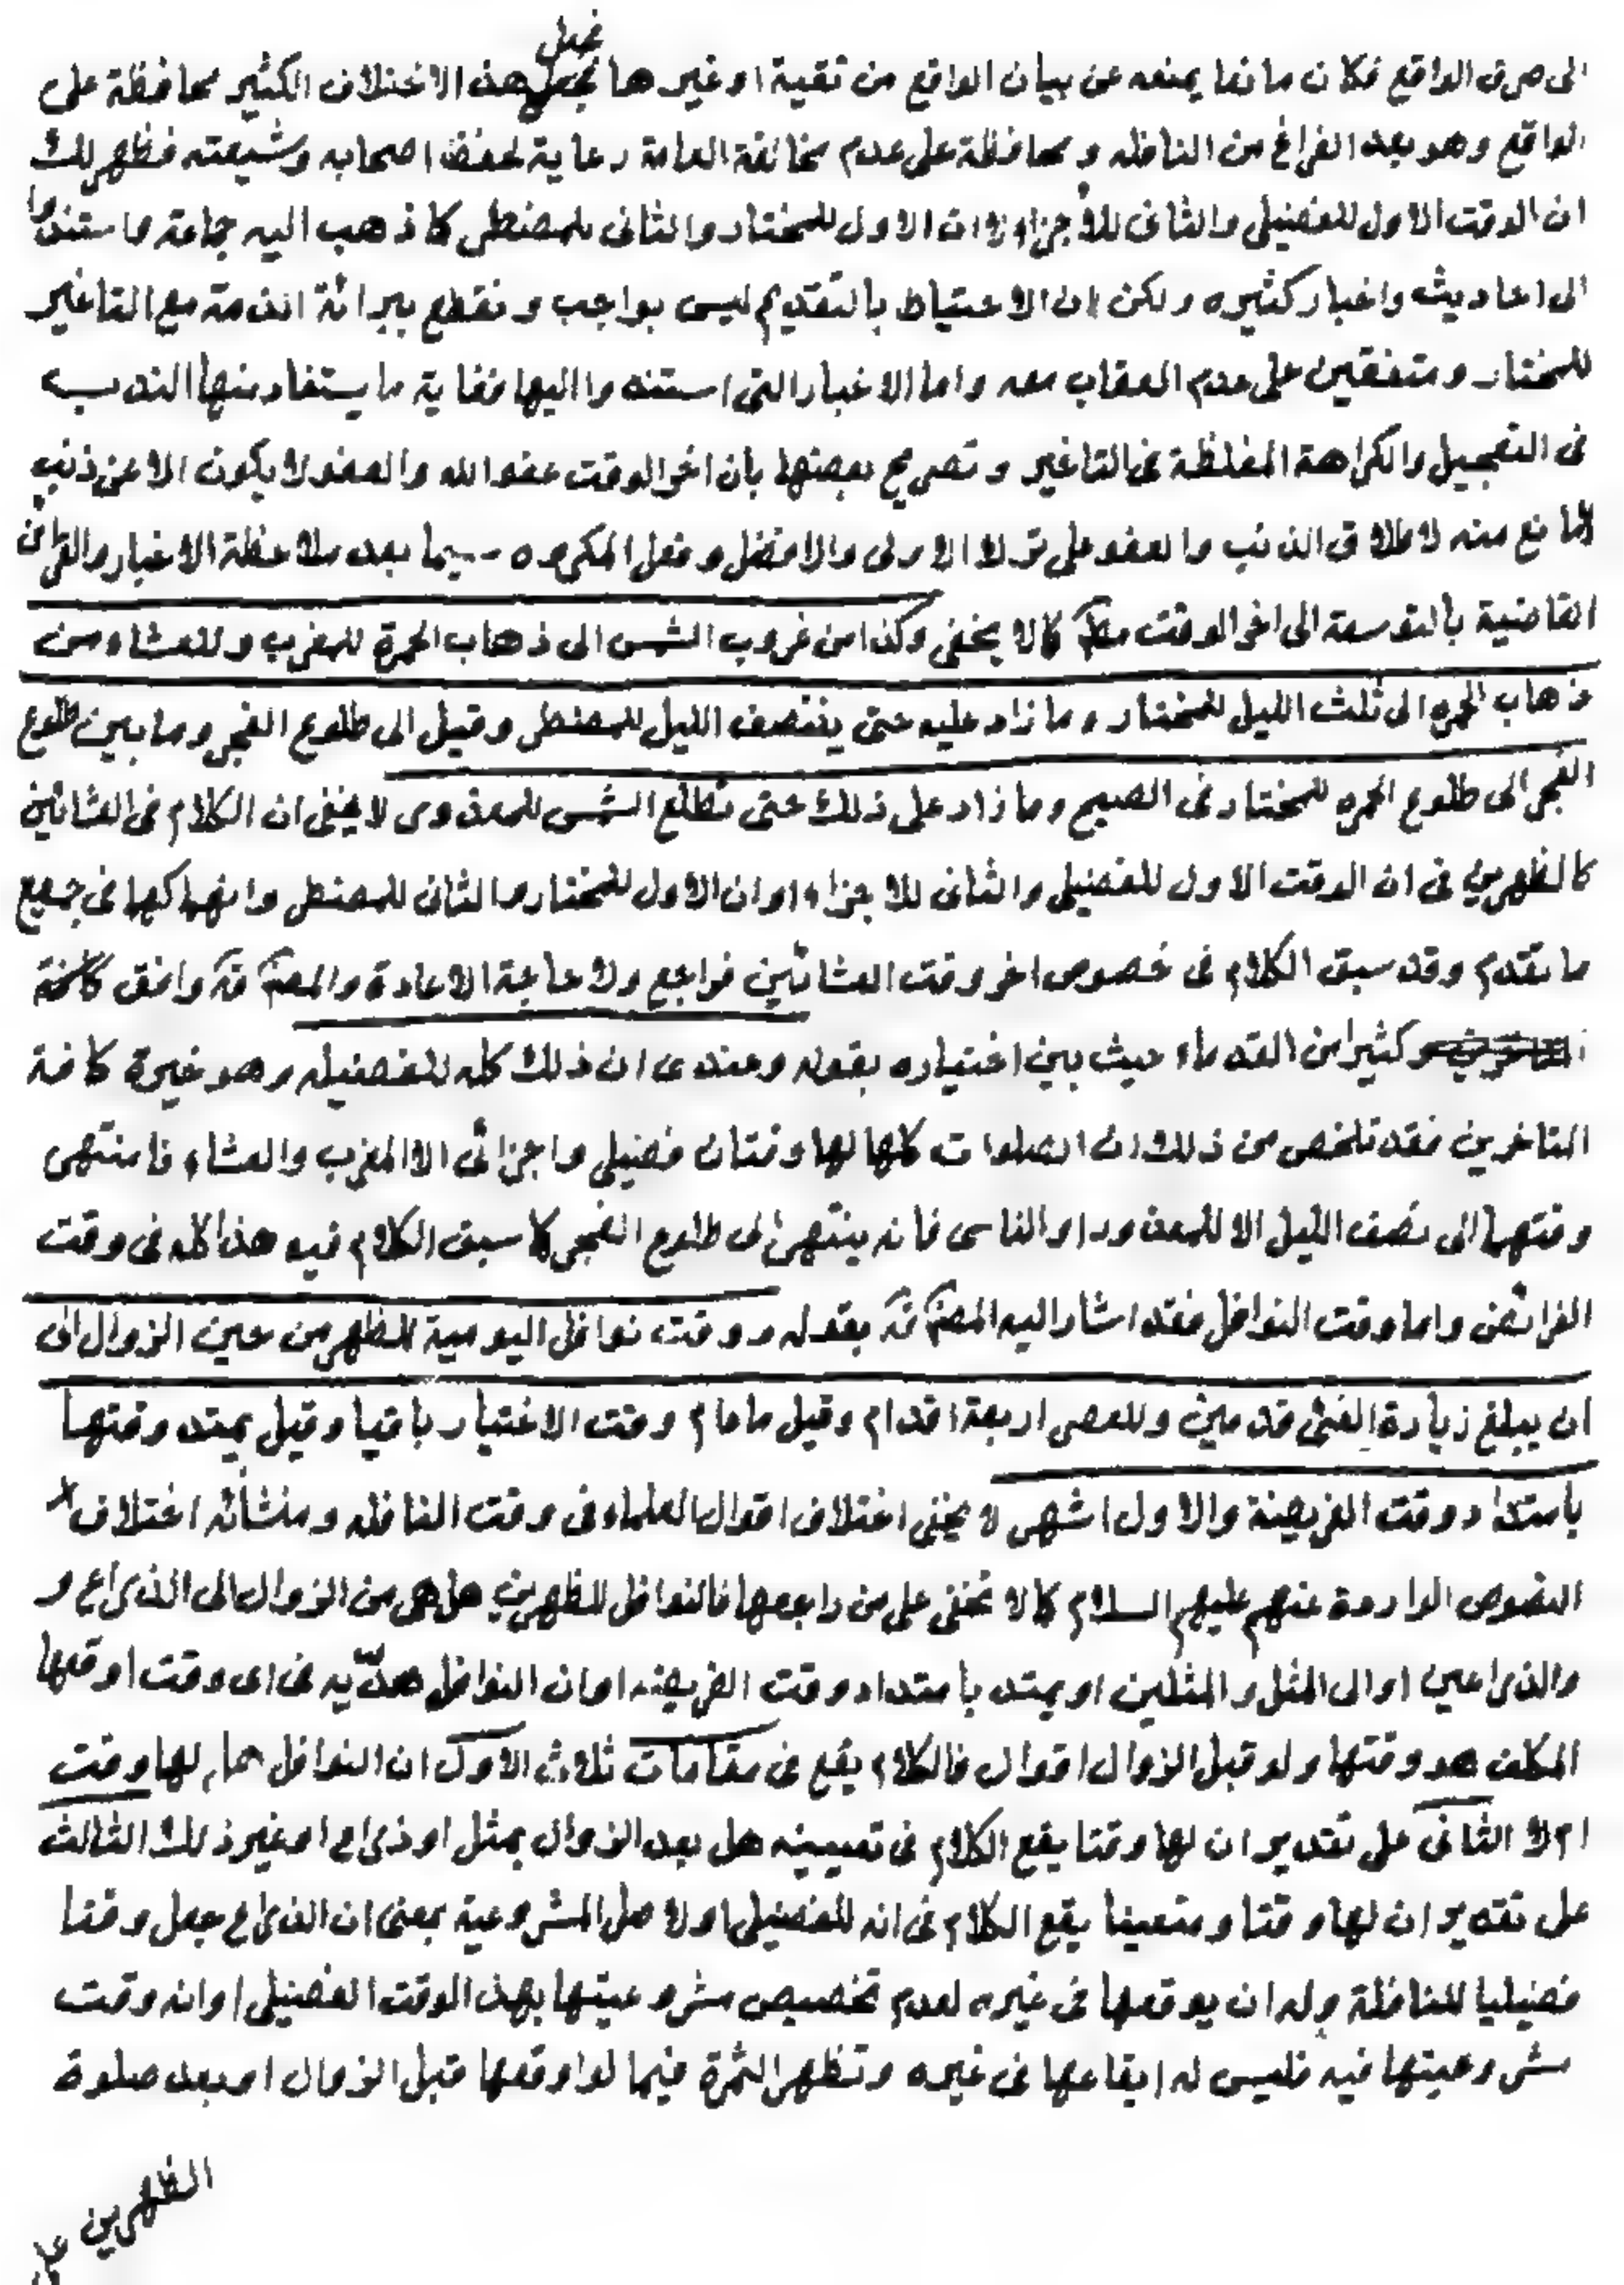 الى صرف الواقع فكان مانعا يمنعه عن بيان الواقع من تقية او غيرها فجعل هذا الاختلاف الكثير محافظة على
الواقع وهو بعد الفراغ من النافله و محافظة على عدم مخالفة العامة رعاية لحفظ اصحابه وشيعته فظهر لك
ان الوقت الاول للفضيلى والثانى للأجزاء او ان الاول للمختار والثانى للمضطر كما ذهب اليه جماعة واستندوا
الى احاديث واخبار كثيره ولكن ان الاحتياط بالتقديم ليس بواجب و نقطع ببرائة الذمة مع التاخير
للمختار و متفقين على عدم العقاب معه واما الاخبار التى استندوا اليها فغاية ما يستفاد منها الندب
فى التعجيل والكراهة المغلظة فى التاخير و تصريح بعضها بأن اخر الوقت عفو الله والعفو لا يكون الا عن ذنب
لا مانع منه لاطلاق الذنب والعفو على ترك الاولى والافضل و فعل المكروه سيما بعد ملاحظة الاخبار والقرائن
القاضية بالتوسعة الى اخر الوقت مط كما لا يخفى وكذا من غروب الشمس الى ذهاب الحمرة للمغرب وللعشاء من
ذهاب الحمره الى ثلث الليل للمختار وما زاد عليه حتى ينتصف الليل للمضطر وقيل الى طلوع الفجر وما بين طلوع
الفجر الى طلوع الحمره للمختار فى الصبح وما زاد على ذلك حتى تطلع الشمس للمعذور لا يخفى ان الكلام فى العشائين
كالظهرين فى ان الوقت الاول للفضيلى والثانى للاجزاء او ان الاول للمختار والثانى للمضطر وانهما كهما فى جميع
ما تقدم وقد سبق الكلام فى خصوص اخر وقت العشائين فراجع ولا حاجة الاعادة والمصنف قده وافق كافة
المتاخرين وكثيرا من القدماء حيث بين اختياره بقوله وعندى ان ذلك كله للفضيله وهو خيرة كافة
التاخرين فقد تلخص من ذلك ان الصلوات كلها لها وقتان فضيلى واجزائى الا المغرب والعشاء فامنتهى
وقتهما الى نصف الليل الا للمعذور او الناسى فانه ينتهى الى طلوع الفجر كما سبق الكلام فيه هذا كله فى وقت
الفرائض واما وقت النوافل فقد اشار اليه المصنف قده بقوله ووقت نوافل اليومية للظهر من حين الزوال الى
ان يبلغ زيادة الفئ قدمين وللعصر اربعة اقدام وقيل مادام وقت الاختيار باقيا وقيل يمتد وقتها
بامتداد وقت الفريضة والاول اشهر لا يخفى اختلاف اقوال العلماء فى وقت النافله ومنشأئه اختلاف
النصوص الواردة عنهم عليهم السلام كما لا تخفى على من راجعها فالنوافل للظهرين هل هى من الزوال الى الذراع و
والذراعين او الى المثل والمثلين او يمتد بامتداد وقت الفريضه او ان النوافل هدّيه فى اى وقت اوقعها
المكلف هو وقتها ولو قبل الزوال اقوال فالكلام يقع فى مقامات ثلاث الاول ان النوافل هل لها وقت
ام لا الثانى على تقدير ان لها وقتا يقع الكلام فى تعيينه هل بعد الزوال بمثل او ذراع او غير ذلك الثالث
على تقدير ان لها وقتا و متعينا يقع الكلام فى انه للفضيلى او لاصل المشروعية بمعنى ان الذراع جعل وقتا
فضيليا للنافلة وله ان يوقعها فى غيره لعدم تخصيص مشروعيتها بهذا الوقت الفضيلى او انه وقت
مشروعيتها فيه فليس له ايقاعها فى غيره وتظهر الثمرة فيما لو اوقعها قبل الزوال او بعد صلوة
الظهرين على